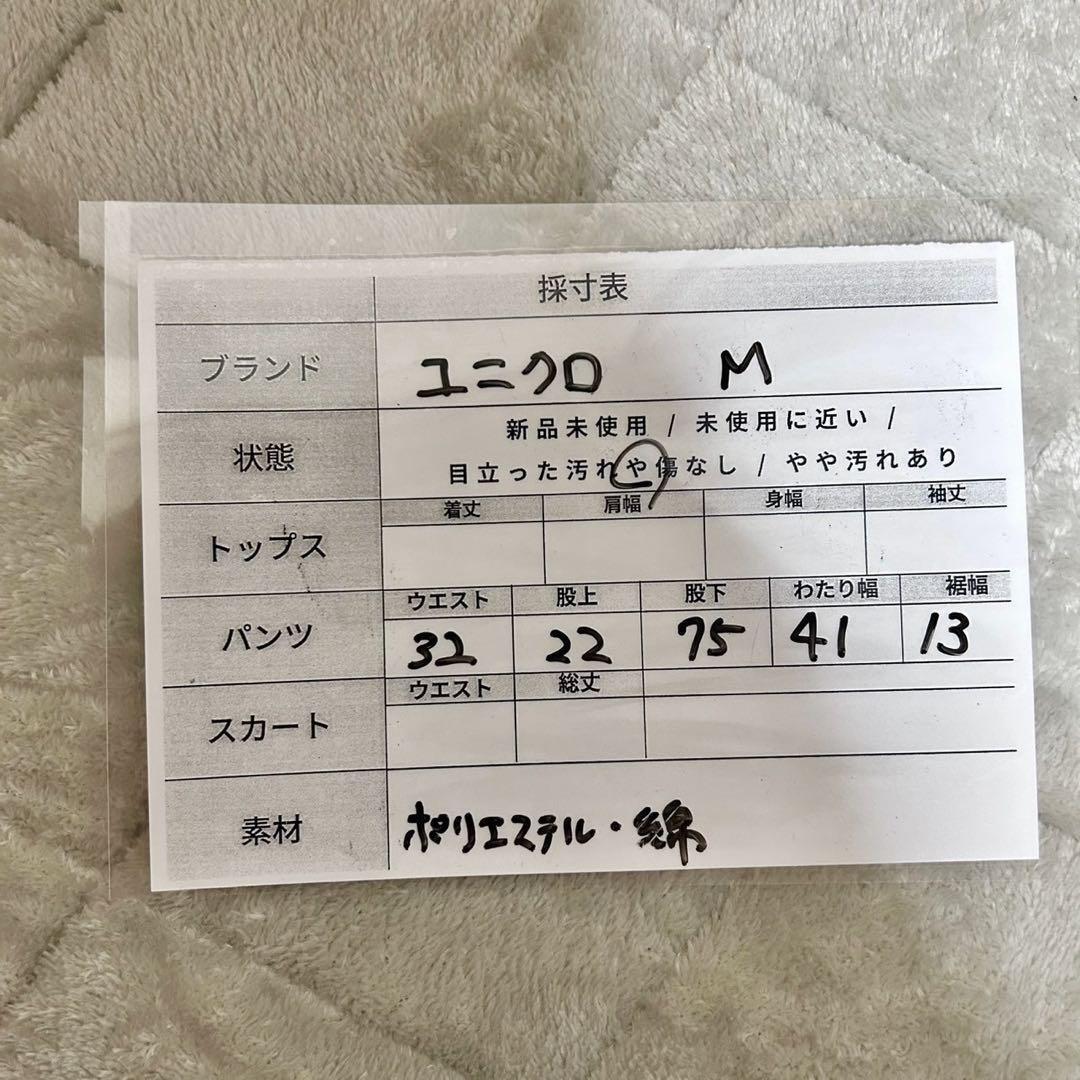 採寸表
ブランド ユニクロ M
状態 新品未使用 / 未使用に近い /
目立った汚れや傷なし / やや汚れあり
着丈 肩幅 身幅 袖丈
トップス
ウエスト 股上 股下 わたり幅 裾幅
パンツ 32 22 75 41 13
ウエスト 総丈
スカート
素材 ポリエステル・綿